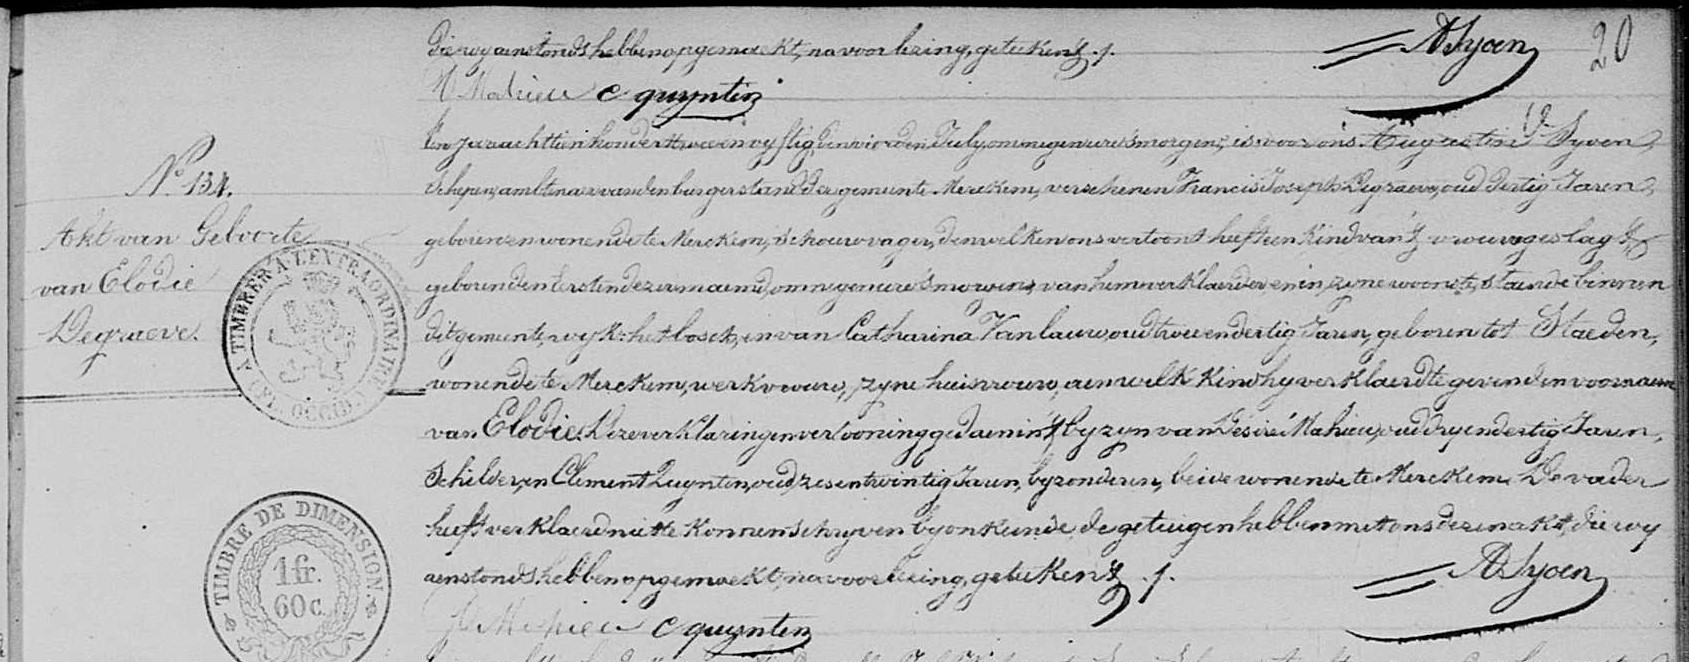 die wy aenstonds hebben opgemaekt, na voorlezing, geteekent ./.
ASyoen
20
D Mahieu C quyntin
No 134.
Akt van Geboorte
van Elodie
Degraeve.
In 't jaer achttien honderd twee en vyftig, den vierden July om negen ure 's morgens, is voor ons Augustin Syoen,
Schepen, ambtenaer van den burgerstand der gemeente Merckem, verschenen Francis Joseph Degraeve, oud dertig Jaren,
geboren en wonende te Merckem, schouwvager, denwelken ons vertoont heeft een kind van 't vrouwgeslagt,
geboren den eersten dezer maend, om negen ure 's morgens, van hem verklaerder en in zyne woonste, staende binnen
dit gemeente, wyk: het bosch, en van Catharina Vanlauw, oud twee en dertig Jaren, geboren tot Staeden,
wonende te Merckem, werkvrouw, zyne huisvrouw, aen welk kind hy verklaerd te geven den voornaem
van Elodie. Deze verklaring en vertooning gedaen in 't byzyn van Désiré Mahieu, oud dry en dertig Jaren,
Schilder, en Clement Quyntin, oud zes en twintig Jaren, byzonderen, beide wonende te Merckem. De vader
heeft verklaerd niet te konnen schryven by onkunde, de getuigen hebben met ons dezen akt, die wy
aenstonds hebben opgemaekt, na voorlezing, geteekent ./.
ASyoen
D Mahieu C quyntin
A TIMBRER A L'EXTRAORDINAIRE
(FL. OCCID.)
TIMBRE DE DIMENSION.
1 fr.
60 c.